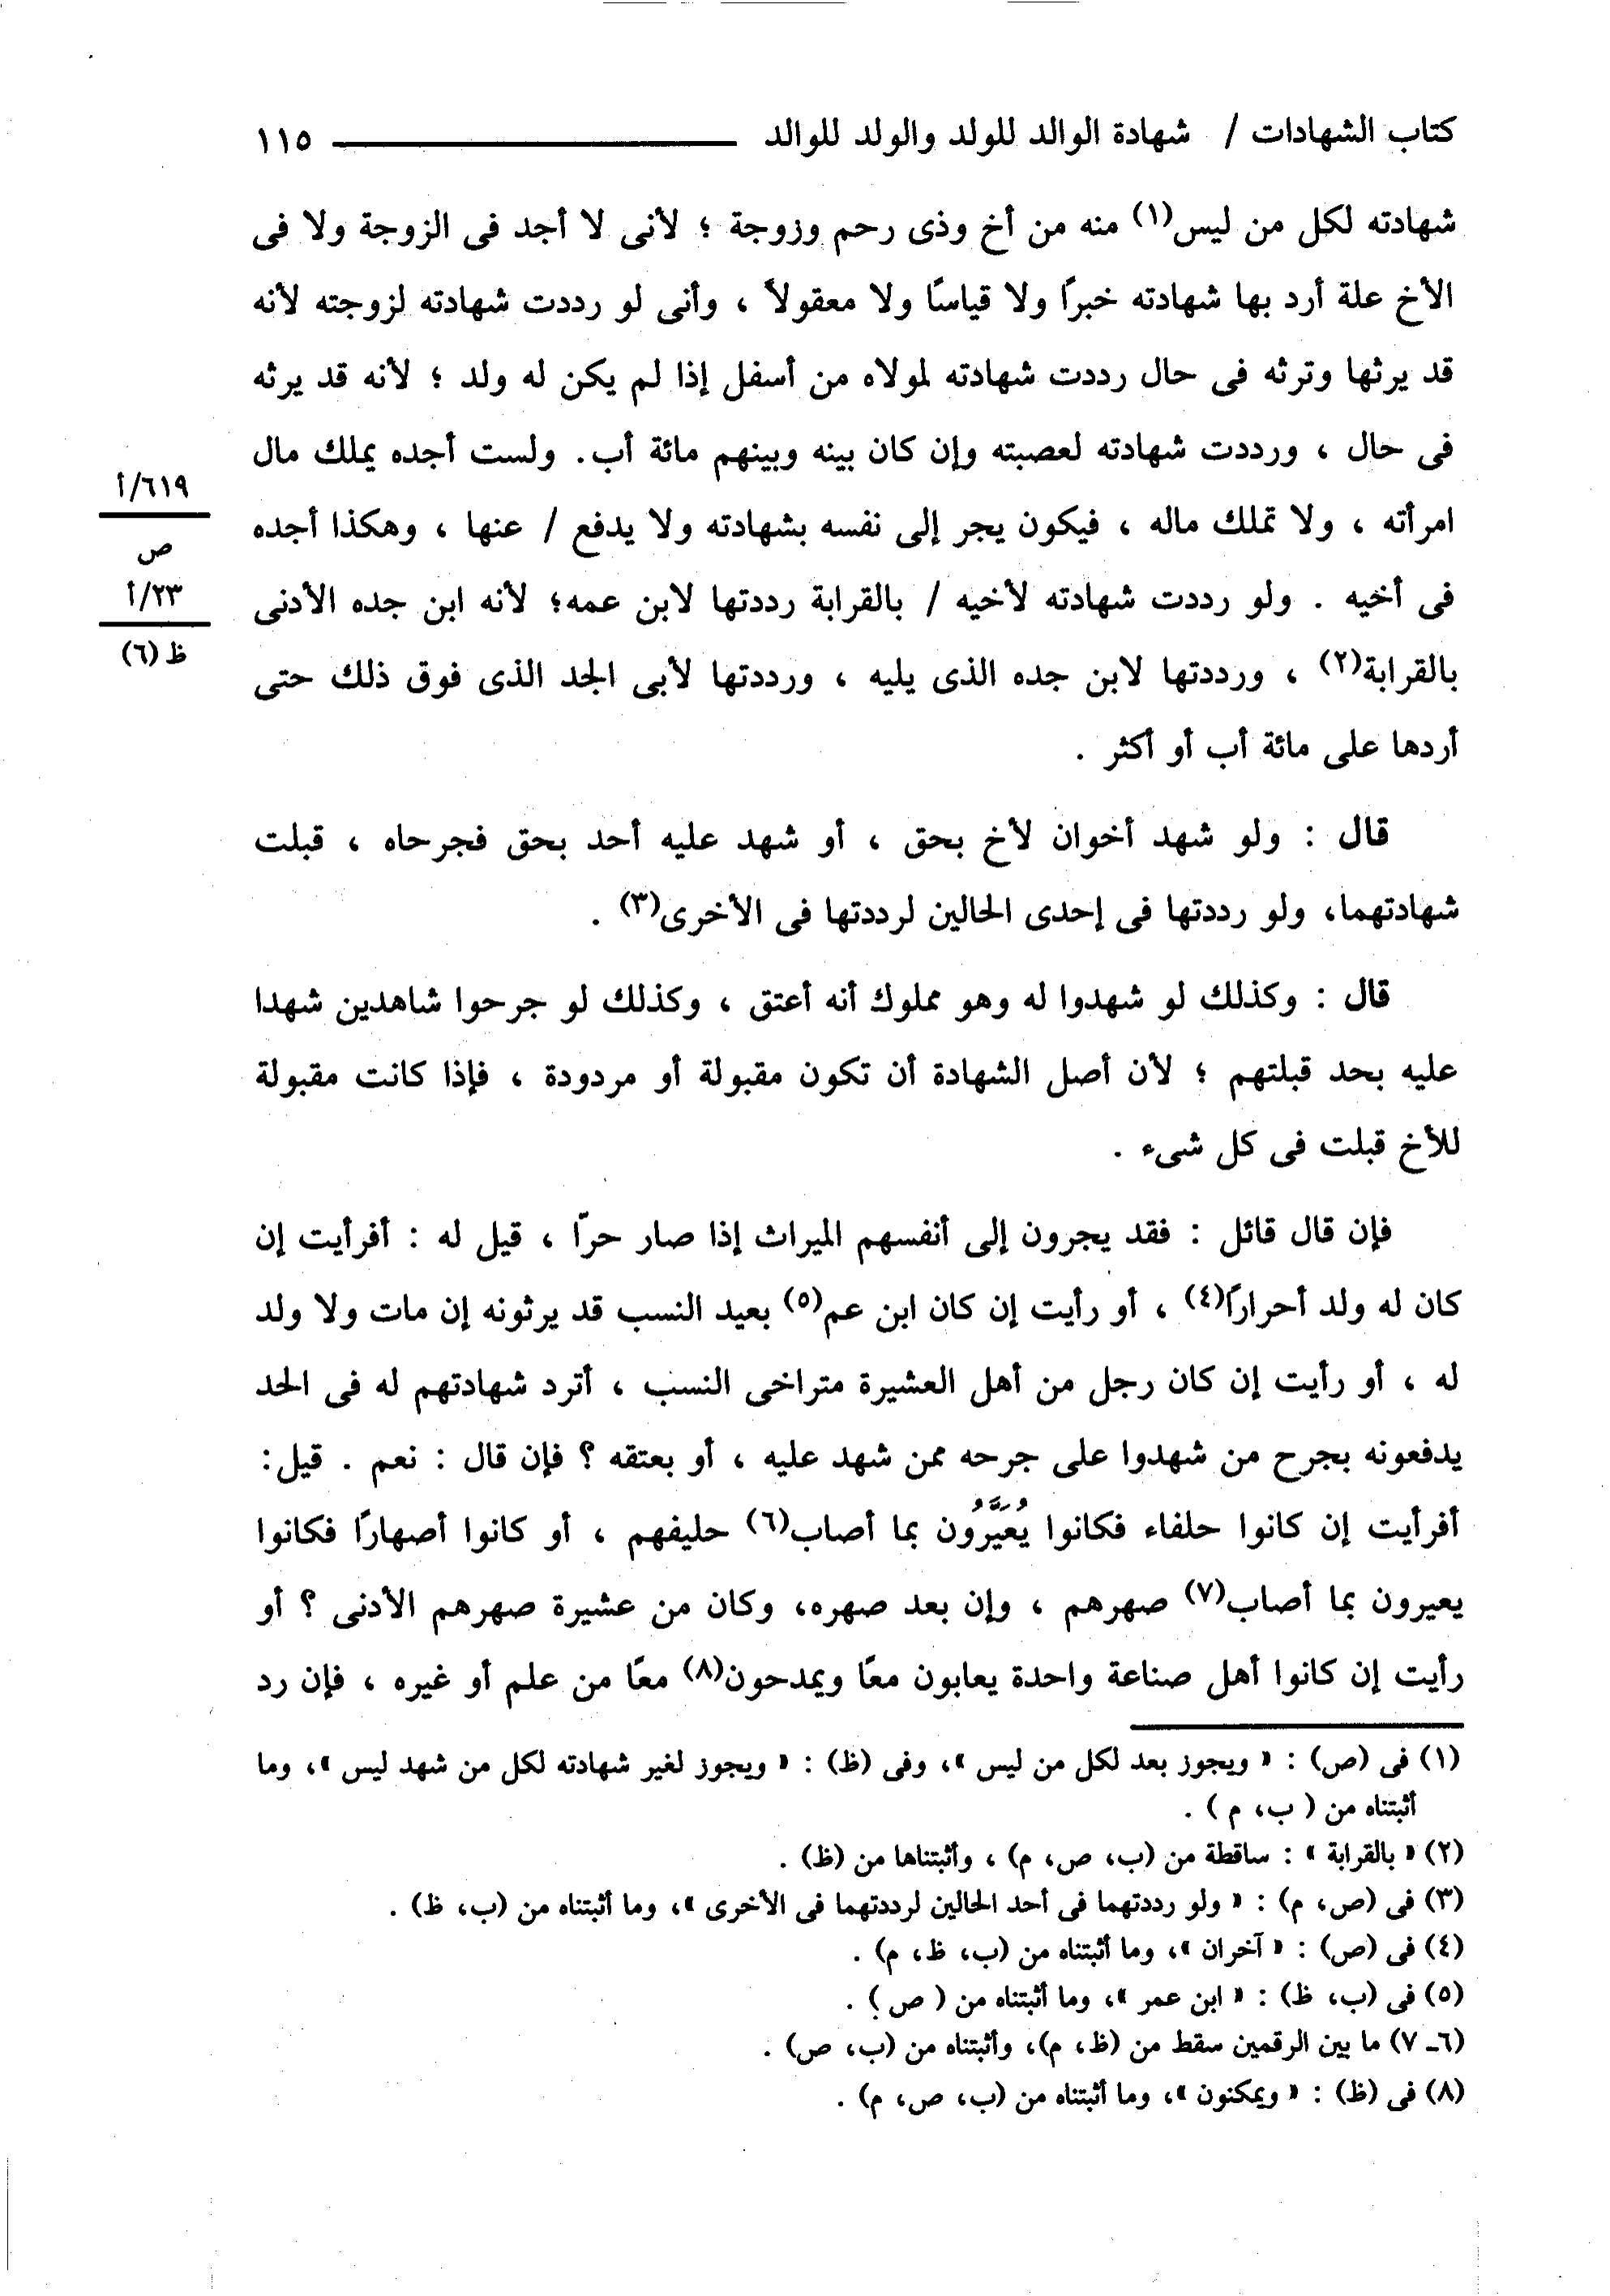 كتاب الشهادات / شهادة الوالد للولد والولد للوالد ١١٥
شهادته لكل من ليس(١) منه من أخ وذى رحم وزوجة ؛ لأنى لا أجد فى الزوجة ولا فى
الأخ علة أرد بها شهادته خبرًا ولا قياسًا ولا معقولاً ، وأنى لو رددت شهادته لزوجته لأنه
قد يرثها وترثه فى حال رددت شهادته لمولاه من أسفل إذا لم يكن له ولد ؛ لأنه قد يرثه
فى حال ، ورددت شهادته لعصبته وإن كان بينه وبينهم مائة أب. ولست أجده يملك مال
امرأته ، ولا تملك ماله ، فيكون يجر إلى نفسه بشهادته ولا يدفع / عنها ، وهكذا أجده
فى أخيه . ولو رددت شهادته لأخيه / بالقرابة رددتها لابن عمه؛ لأنه ابن جده الأدنى
بالقرابة(٢) ، ورددتها لابن جده الذى يليه ، ورددتها لأبى الجد الذى فوق ذلك حتى
أردها على مائة أب أو أكثر .
٦١٩/أ
ص
٢٣/أ
ظ (٦)
قال : ولو شهد أخوان لأخ بحق ، أو شهد عليه أحد بحق فجرحاه ، قبلت
شهادتهما، ولو رددتها فى إحدى الحالين لرددتها فى الأخرى(٣) .
قال : وكذلك لو شهدوا له وهو مملوك أنه أعتق ، وكذلك لو جرحوا شاهدين شهدا
عليه بحد قبلتهم ؛ لأن أصل الشهادة أن تكون مقبولة أو مردودة ، فإذا كانت مقبولة
للأخ قبلت فى كل شىء .
فإن قال قائل : فقد يجرون إلى أنفسهم الميراث إذا صار حرًّا ، قيل له : أفرأيت إن
كان له ولد أحرارًا(٤) ، أو رأيت إن كان ابن عم(٥) بعيد النسب قد يرثونه إن مات ولا ولد
له ، أو رأيت إن كان رجل من أهل العشيرة متراخى النسب ، أترد شهادتهم له فى الحد
يدفعونه بجرح من شهدوا على جرحه ممن شهد عليه ، أو بعتقه ؟ فإن قال : نعم . قيل:
أفرأيت إن كانوا حلفاء فكانوا يُعيَّرُون بما أصاب(٦) حليفهم ، أو كانوا أصهارًا فكانوا
يعيرون بما أصاب(٧) صهرهم ، وإن بعد صهره، وكان من عشيرة صهرهم الأدنى ؟ أو
رأيت إن كانوا أهل صناعة واحدة يعابون معًا ويمدحون(٨) معًا من علم أو غيره ، فإن رد
(١) فى (ص) : « ويجوز بعد لكل من ليس »، وفى (ظ) : « ويجوز لغير شهادته لكل من شهد ليس »، وما
أثبتناه من ( ب، م ) .
(٢) « بالقرابة » : ساقطة من (ب، ص، م) ، وأثبتناها من (ظ) .
(٣) فى (ص، م) : « ولو رددتهما فى أحد الحالين لرددتهما فى الأخرى »، وما أثبتناه من (ب، ظ) .
(٤) فى (ص) : « آخران »، وما أثبتناه من (ب، ظ، م) .
(٥) فى (ب، ظ) : « ابن عمر »، وما أثبتناه من ( ص ) .
(٦ـ ٧) ما بين الرقمين سقط من (ظ، م)، وأثبتناه من (ب، ص) .
(٨) فى (ظ) : « ويمكنون »، وما أثبتناه من (ب، ص، م) .